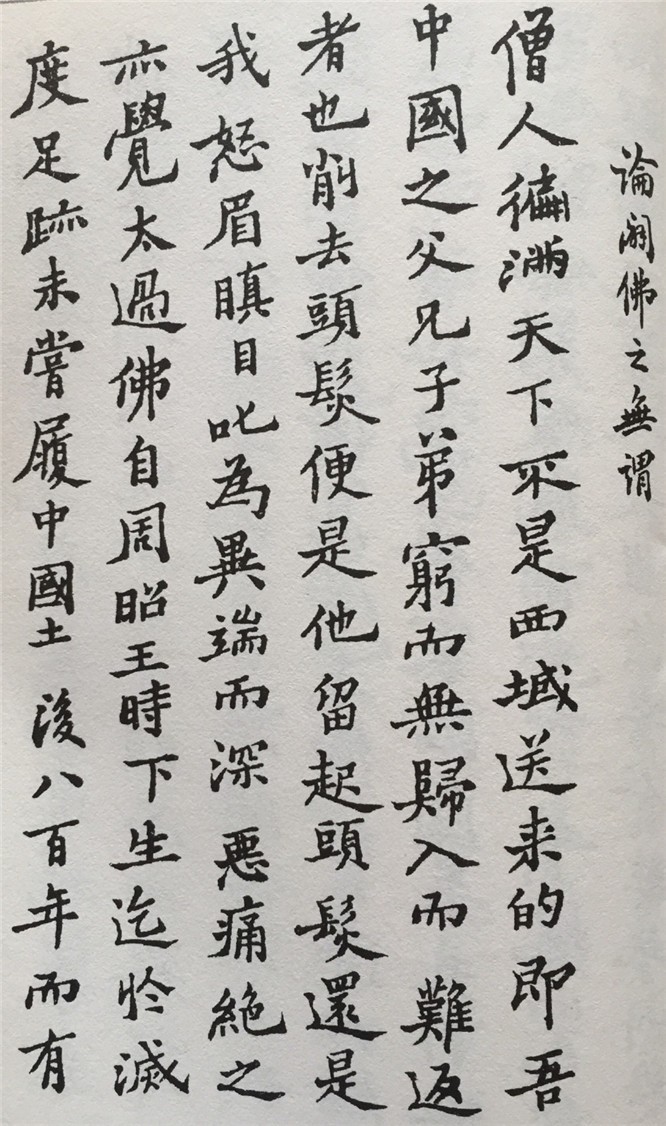 論闢佛之無謂
僧人徧滿天下不是西域送来的即吾
中國之父兄子弟窮而無歸入而難返
者也削去頭髮便是他留起頭髮還是
我怒眉瞋目叱為異端而深惡痛絶之
亦覺太過佛自周昭王時下生迄於滅
度足跡未嘗履中國土後八百年而有